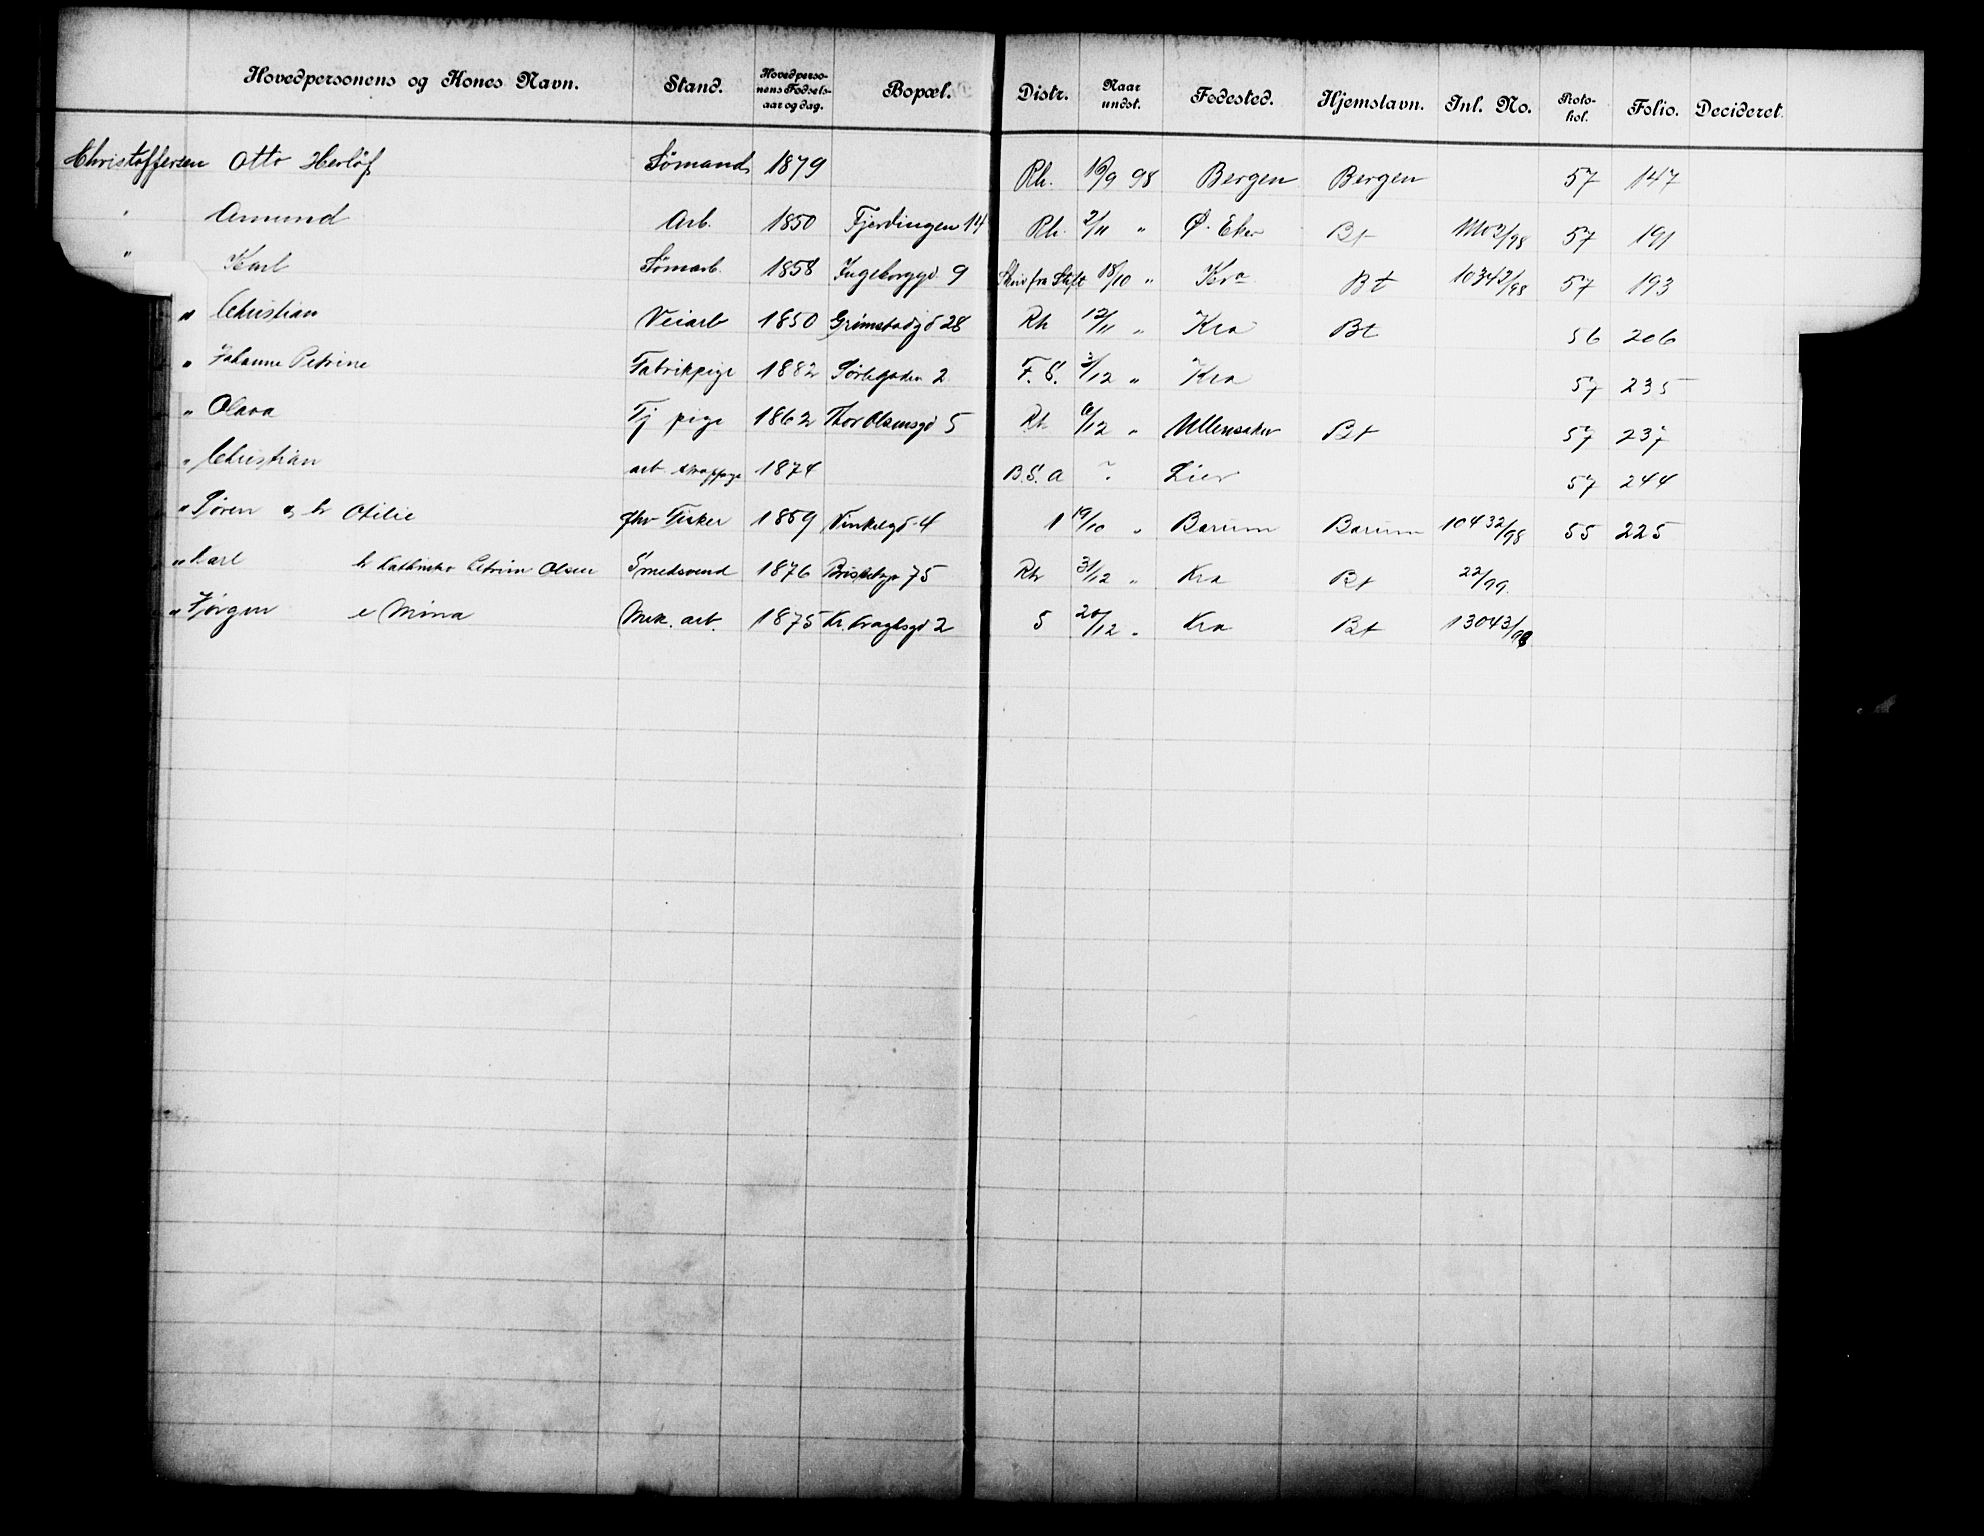 Hovedpersonens og Kones Navn. Stand. Hovedperso-nens Fødsels-aar og dag. Bopæl. Distr. Naar undst. Fødested. Hjemstavn. Inl. No. Proto-kol. Folio. Decideret.
Christoffersen Otto Herlöf Sömand 1879 Rh. 16/9 98 Bergen Bergen 57 147
" Amund Arb. 1850 Fjerdingen 14 Rh. 2/11 " Ø. Eker Bt 57 191
" Karl Sömarb. 1858 Ingeborggd. 9 fra Stift 18/10 " Kra Bt 10342/98 57 193
" Christian Veiarb 1850 Grimstadgd 28 Rh 12/11 " Kra Bt 56 206
" Johanne Petrine Fabrikpige 1882 2 F. S. 3/12 " Kra 57 235
" Olava Tj pige 1862 Thor Olsensgd 5 Rh 6/12 " Ullensaker Bt 57 237
" Christian arb. 1874 B.S. a ? Lier 57 244
" Sören og h Otilie Fisker 1859 Vinkelgd. 4 1 19/10 " Barum Barum 10432/98 55 225
" Karl h Olsen Smedsvend 1876 75 Rh 31/12 " Kra Bt 22/99.
" Jörgen e Mina Mek. arb. 1875 2 5 20/12 " Kra Bt 13043/98